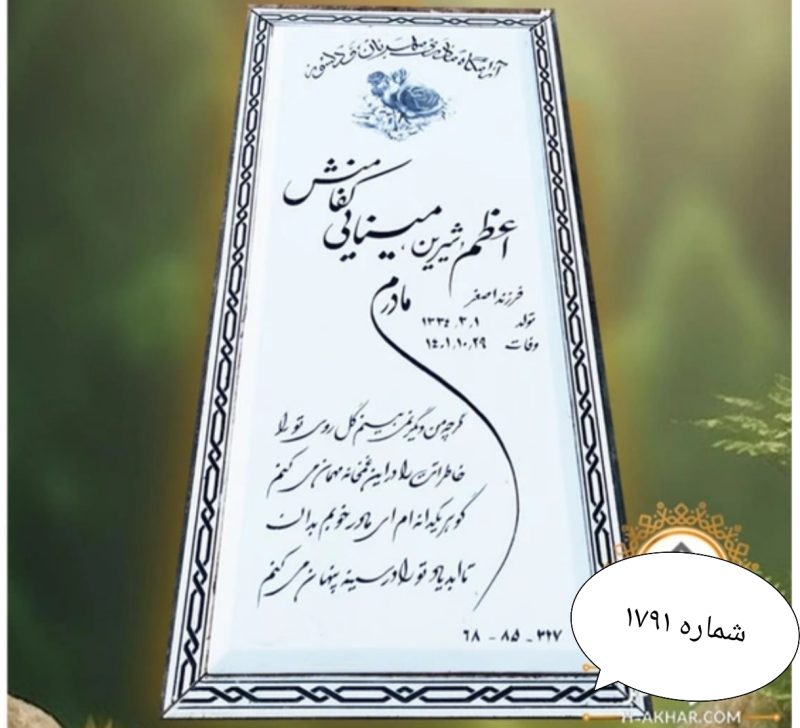 آرامگاه مادری مهربان و دلسوز
اعظم (شیرین) مینایی کفاش منش
فرزند اصغر
مادرم
تولد ۱۳۳۴.۳.۱
وفات ۱۴۰۱.۱۰.۲۹
گرچه من دیگر نمی بینم گل روی تو را
خاطراتت را در این غمخانه مهمان می کنم
گوهر یکدانه ام ای مادر خوبم بدان
تا ابد یاد تو را در سینه پنهان می کنم
۶۸ - ۸۵ - ۳۲۷
شماره ۱۷۹۱
H-AKHAR.COM